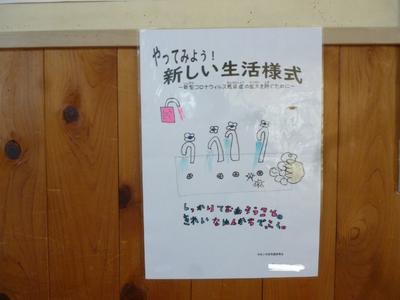 やってみよう!
新しい生活様式
～新型コロナウィルス感染症の拡大を防ぐために～
しっかりておあらうことも。
きれいなはんかちでふく。